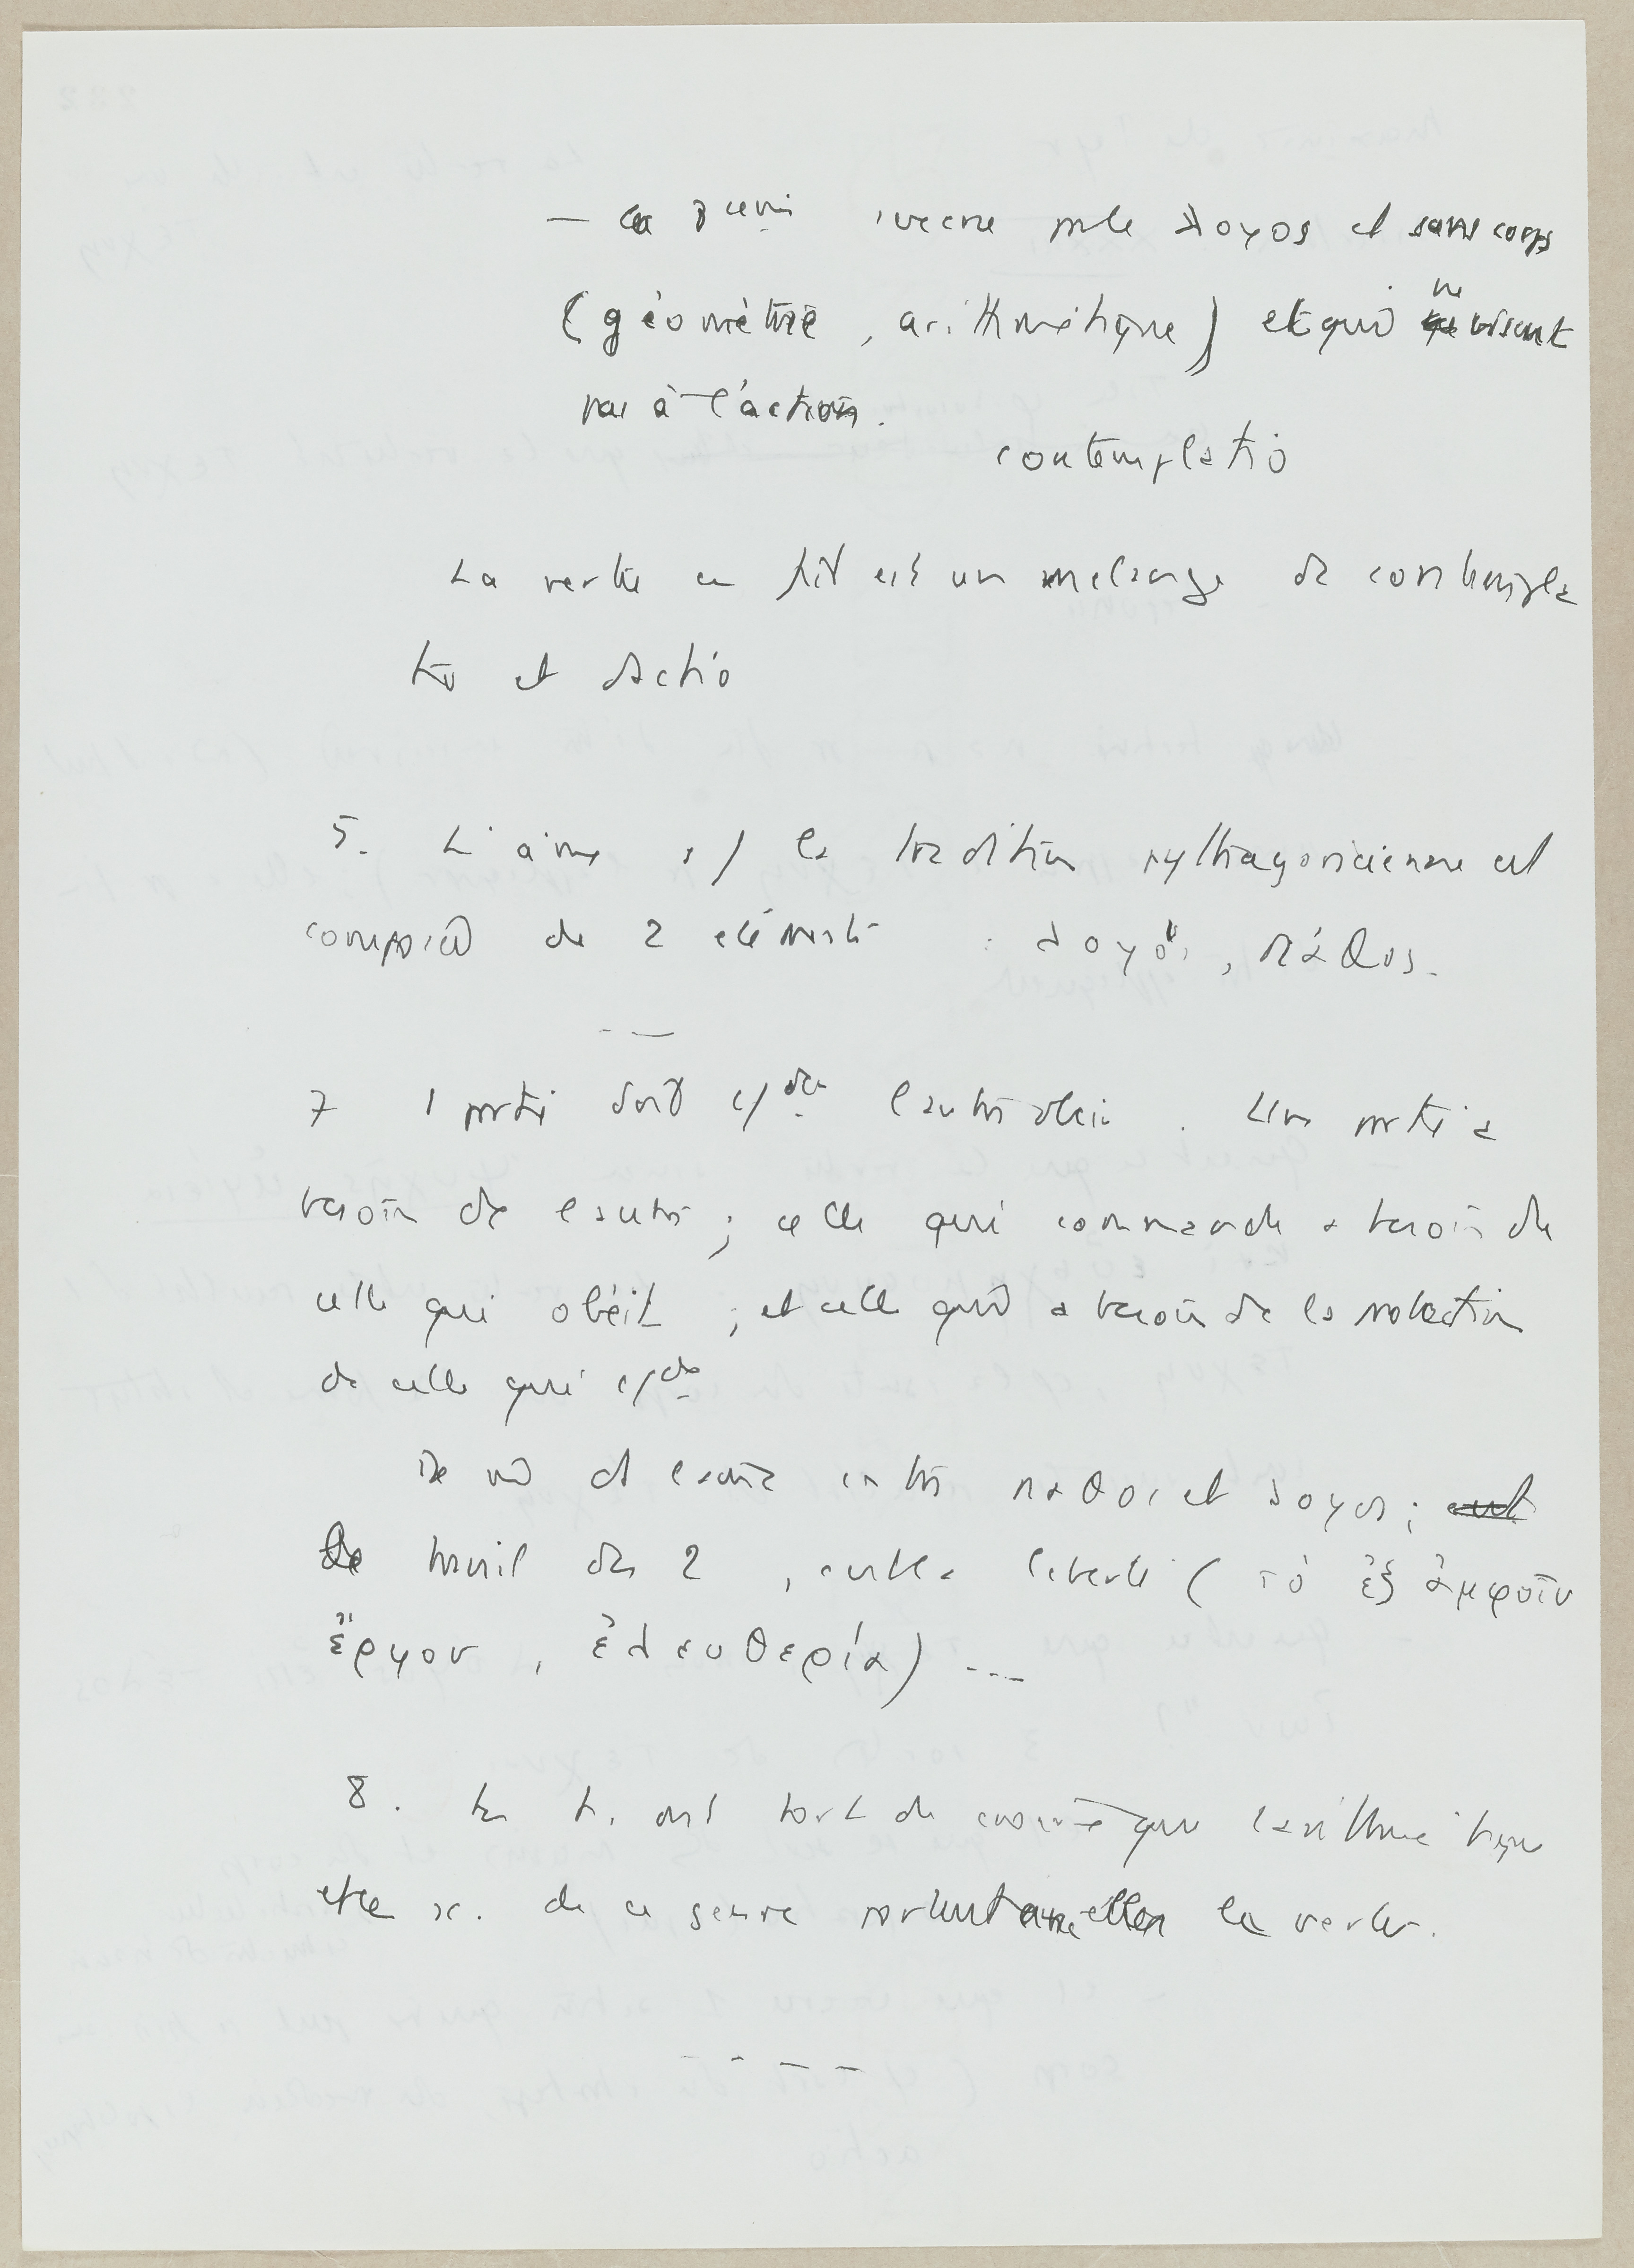 — la par le λογος et sans corps
(géométrie, arithmétique) et qui ne visent
pas à l'action.
contemplatio
La vertu en fait est un melange de contempla
tio et d'actio
5. L'ame s/ la tradition pythagoricienne est
composée de 2 eléments : λογος, πάθος.
7 1 partie doit c/der l'autre obeir. Une partie a
besoin de l'autre ; celle qui commande a besoin de
celle qui obéit ; et celle qui a besoin de la protection
de celle qui c/de
De et entre παθος et λογος ;
Le travail des 2, liberté (τὸ ἐξ ἀμφοῖν
ἔργον, ἐλευθερία) ...
8. ont tort de croire que l'arithmetique
et les x. de ce genre portent a la vertu.